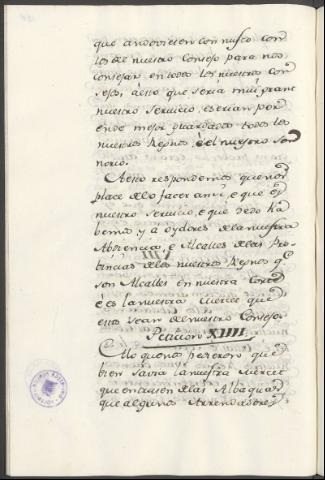 que andoviesen con nusco con
los de nuestro Consejo para nos
consejar en todos los nuestros con
sejos, a esto que sería mui grant
nuestro servicio, e serían por
ende mejor guardados todos los
nuestros Reynos, e el nuestro se
norio.
A esto respondemos que nos
place de lo facer ansi, e que es
nuestro servicio, e que desto ha
bemos, y a oydores de la nuestra
Abdiencia, e Alcalles de las Pro
bincias de los nuestros Reynos q.e
son Alcalles en nuestra Corte
e es la nuestra merced que
estos sean del nuestro Consejo
Peticion XIIII
A lo que nos pidieron que
bien savia la nuestra merced
que entrasen de las
que algunos Arrendadores